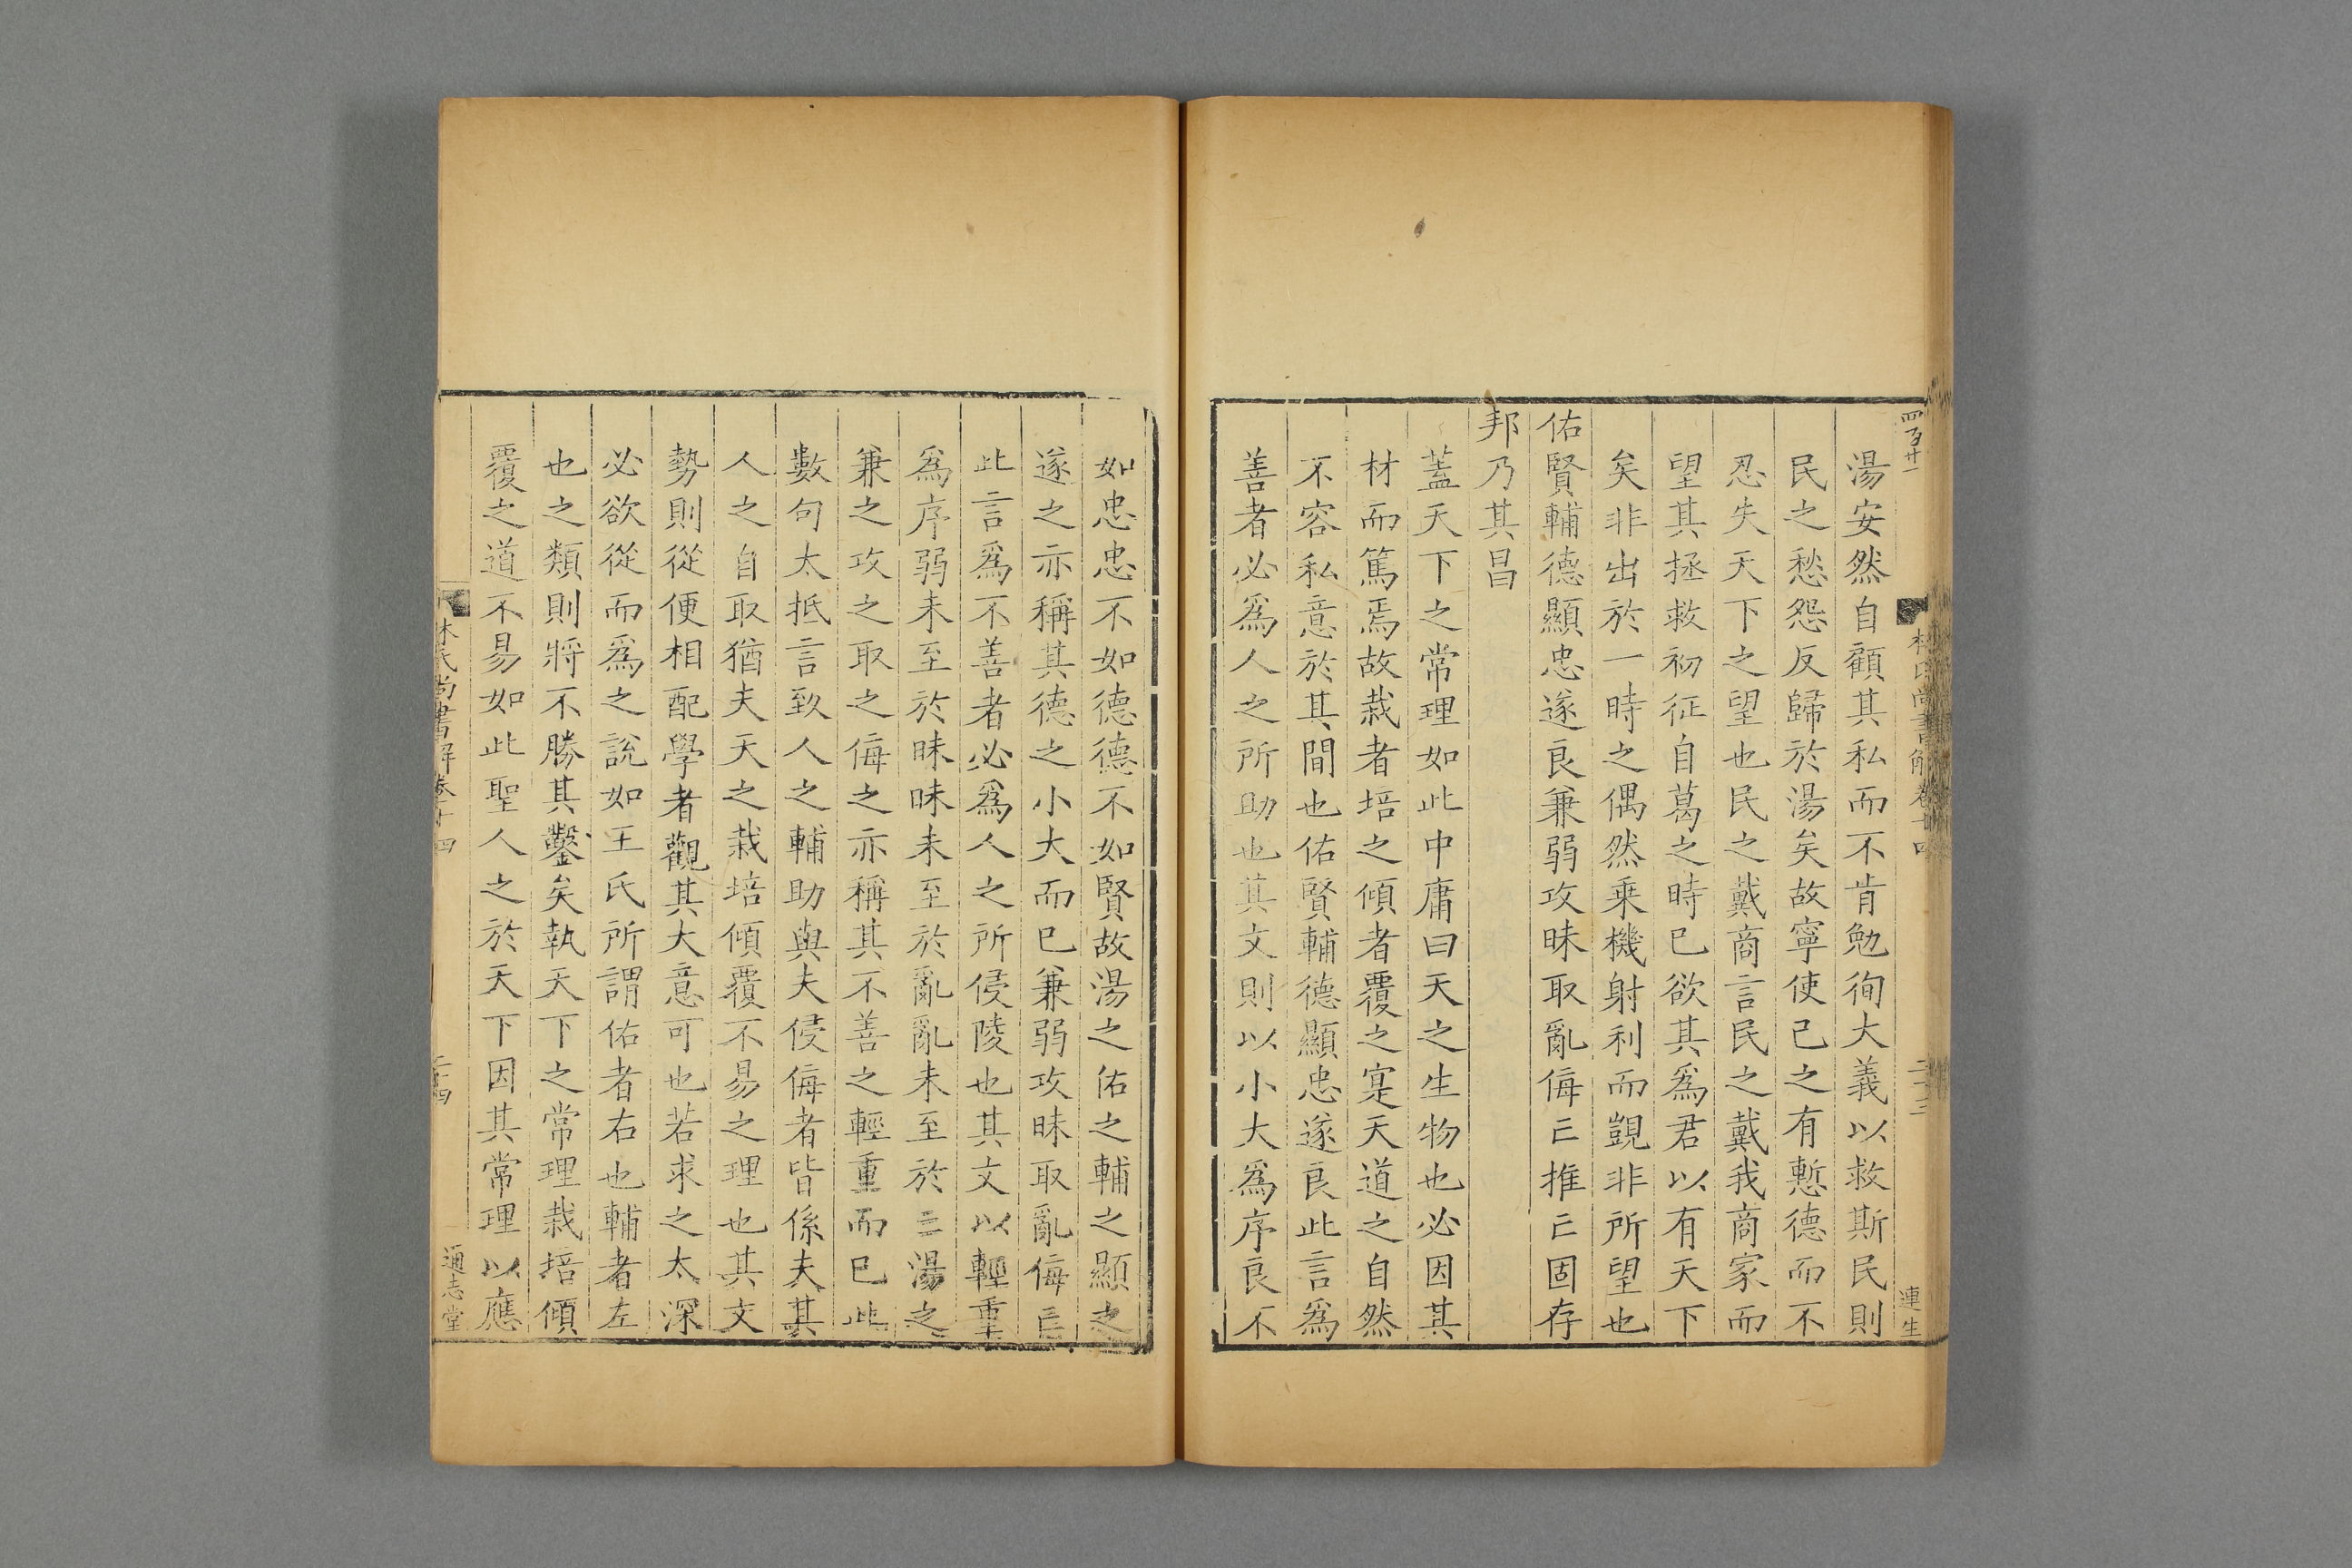 四百廿一
林氏尚書解卷十四
二十三
連生
湯安然自顧其私而不肯勉徇大義以救斯民則
民之愁怨反歸於湯矣故寧使已之有慙德而不
忍失天下之望也民之戴商言民之戴我商家而
望其拯救初征自葛之時已欲其爲君以有天下
矣非出於一時之偶然乗機射利而覬非所望也
佑賢輔德顯忠遂良兼弱攻昧取亂侮亡推亡固存
邦乃其昌
蓋天下之常理如此中庸曰天之生物也必因其
材而篤焉故栽者培之傾者覆之寔天道之自然
不容私意於其間也佑賢輔德顯忠遂良此言爲
善者必爲人之所助也其文則以小大爲序良不
如忠忠不如德德不如賢故湯之佑之輔之顯之
遂之亦稱其德之小大而已兼弱攻昧取亂侮亡
此言爲不善者必爲人之所侵陵也其文以輕重
爲序弱未至於昧昧未至於亂亂未至於亡湯之
兼之攻之取之侮之亦稱其不善之輕重而已此
數句太抵言致人之輔助與夫侵侮者皆係夫其
人之自取猶夫天之栽培傾覆不易之理也其文
勢則從便相配學者觀其大意可也若求之太深
必欲從而爲之說如王氏所謂佑者右也輔者左
也之類則將不勝其鑿矣執天下之常理栽培傾
覆之道不易如此聖人之於天下因其常理以應
林氏尚書解卷十四
二十四
通志堂